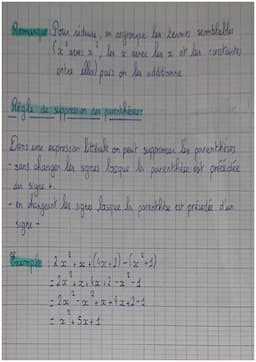 Remarque: Pour réduire, on regroupe les termes semblables
(x² avec x², les x avec les x et les constantes
entre elles) puis on les additionne
Règle de suppression des parenthèses:
Dans une expression littérale on peut supprimer les parenthèses
- sans changer les signes lorsque la parenthèse est précédée
du signe +.
- en changeant les signes lorsque la parenthèse est précédée d'un
signe -
Exemple: 2x² + x + (4x+2) - (x²-1)
= 2x² + x + 4x + 2 - x² - 1
= 2x² - x² + x + 4x + 2 - 1
= x² + 5x + 1